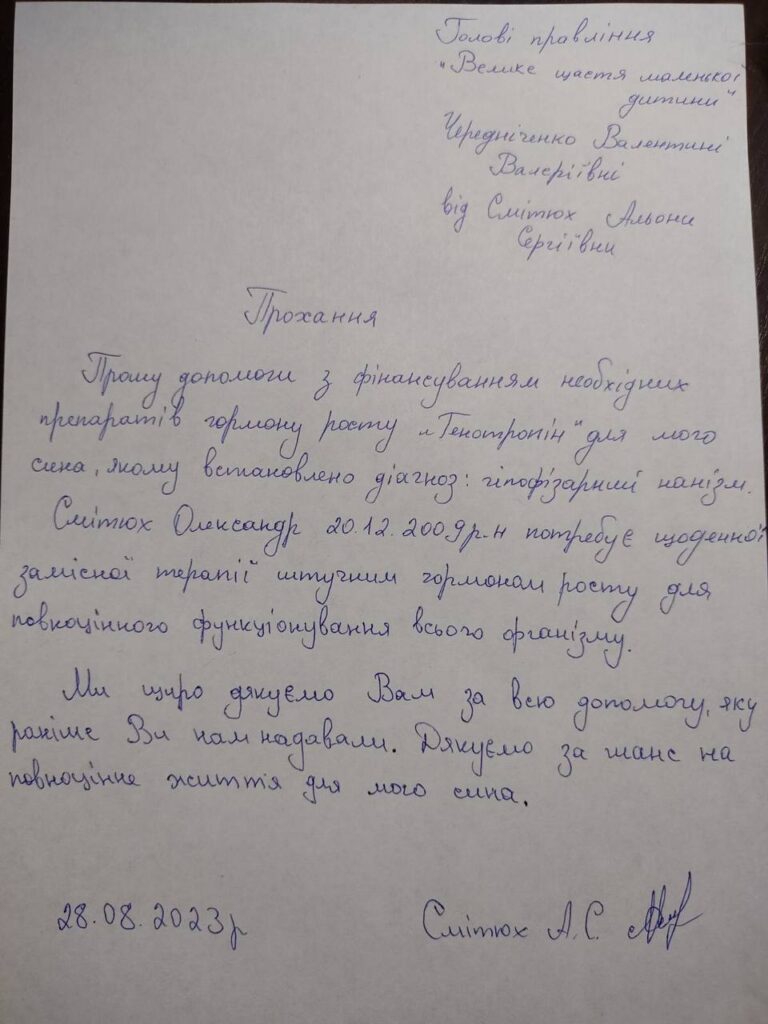 Голові правління
"Велике щастя маленької
дитини"
Чередніченко Валентині
Валеріївні
від Смітюх Альони
Сергіївни
Прохання
Прошу допомоги з фінансуванням необхідних
препаратів гормону росту "Генотропін" для мого
сина, якому встановлено діагноз: гіпофізарний нанізм.
Смітюх Олександр 20.12.2009р.н потребує щоденної
замісної терапії штучним гормоном росту для
повноцінного функціонування всього організму.
Ми щиро дякуємо Вам за всю допомогу, яку
раніше Ви нам надавали. Дякуємо за шанс на
повноцінне життя для мого сина.
28.08.2023р
Смітюх А.С.